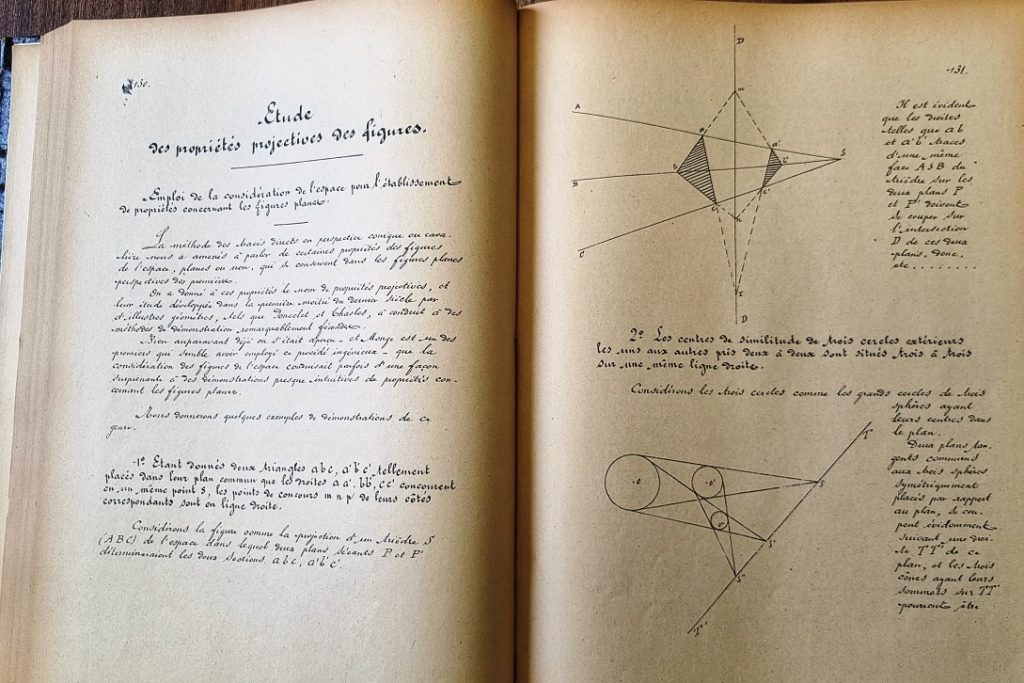 130.
Etude
des propriétés projectives des figures.
Emploi de la considération de l'espace pour l'établissement
de propriétés concernant les figures planes.
La méthode des tracés directs en perspective conique ou cava-
lière nous a amenés à parler de certaines propriétés des figures
de l'espace, planes ou non, qui se conservent dans les figures planes
perspectives des premières.
On a donné à ces propriétés le nom de propriétés projectives, et
leur étude développée dans la première moitié du dernier siècle par
d'illustres géomètres, tels que Poncelet et Chasles, a conduit à des
méthodes de démonstration remarquablement fécondes.
Bien auparavant déjà on s'était aperçu - et Monge est un des
premiers qui semble avoir employé ce procédé ingénieux - que la
considération des figures de l'espace conduisait parfois d'une façon
surprenante à des démonstrations presque intuitives de propriétés con-
cernant les figures planes.
Nous donnerons quelques exemples de démonstrations de ce
genre.
1º Etant donnés deux triangles abc, a'b'c' tellement
placés dans leur plan commun que les droites aa', bb', cc' concourent
en un même point S, les points de concours m n p de leurs côtés
correspondants sont en ligne droite.
Considérons la figure comme la projection d'un trièdre S
(ABC) de l'espace dans lequel deux plans sécants P et P'
détermineraient les deux sections abc, a'b'c'.
131.
D
m
A
a
a'
b
b'
S
B
c
c'
n
C
D
Il est évident
que les droites
telles que ab
et a'b' traces
d'une même
face ASB du
trièdre sur les
deux plans P
et P' doivent
se couper sur
l'intersection
D de ces deux
plans, donc,
etc........
2º Les centres de similitude de trois cercles extérieurs
les uns aux autres pris deux à deux sont situés trois à trois
sur une même ligne droite.
Considérons les trois cercles comme les grands cercles de trois
sphères ayant
leurs centres dans
le plan.
Deux plans tan-
gents communs
aux trois sphères
symétriquement
placés par rapport
au plan, se cou-
pent évidemment
suivant une droi-
te TT' de ce
plan, et les trois
cônes ayant leurs
sommets sur TT'
pourront être
T
o
o'
o"
S
S'
S"
T'